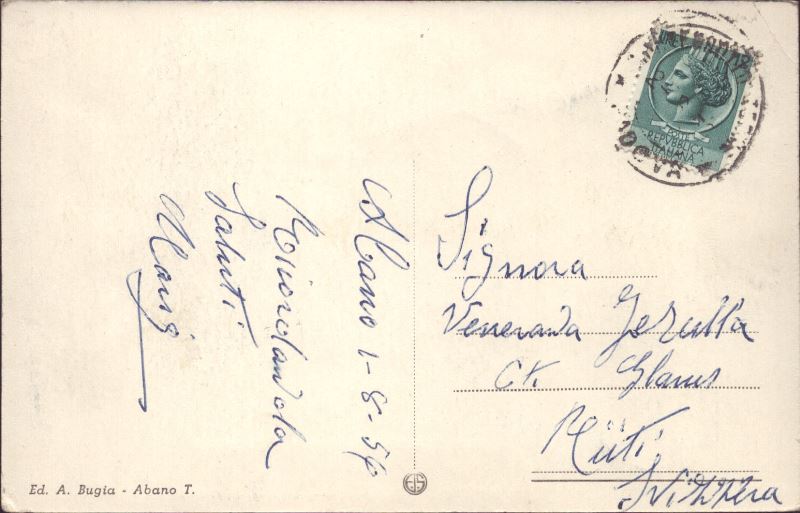 Abano 1-8-54
Ricordandola
Saluti
Signora
Venerada Jezulla
Ct. Glarus
Rüti
Svizzera
POSTE
REPVBBLICA
ITALIANA
Ed. A. Bugia - Abano T.